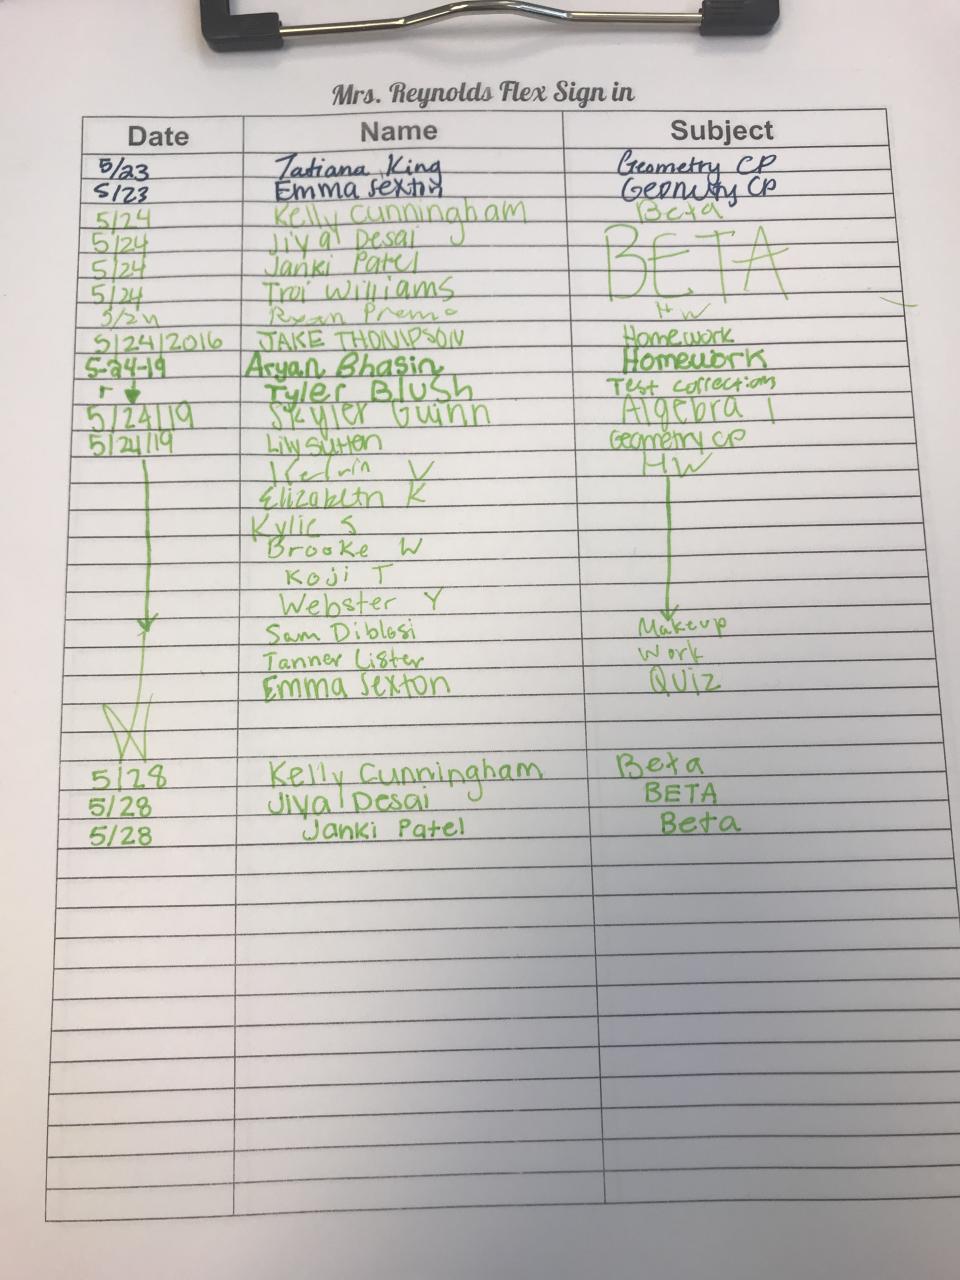 Mrs. Reynolds Flex Sign in
Date Name Subject
5/23 Tatiana King Geometry CP
5/23 Emma Sexton Geometry CP
5/24 Kelly Cunningham Beta
5/24 Jiya Desai BETA
5/24 Janki Patel
5/24 Troi Williams
5/24 Ryan Premo HW
5/24/2016 JAKE THOMPSON Homework
5-24-19 Aryan Bhasin Homework
Tyler Blush Test corrections
5/24/19 Skyler Guinn Algebra 1
5/24/19 Lily Sutton Geometry CP
Kelvin V HW
Elizabeth K
Kylie S
Brooke W
Koji T
Webster Y
Sam Diblasi Makeup
Tanner Lister Work
Emma Sexton Quiz
5/28 Kelly Cunningham Beta
5/28 Jiya Desai BETA
5/28 Janki Patel Beta